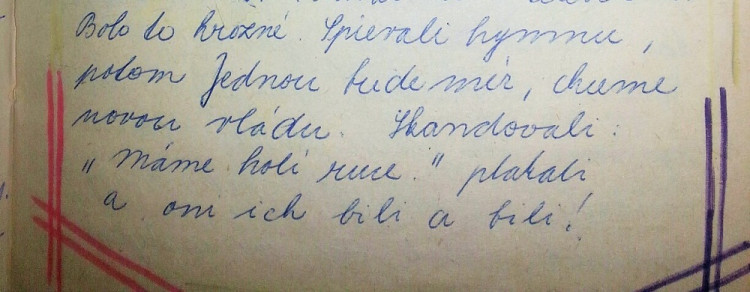 Bolo to hrozné. Spievali hymnu,
potom Jednou bude mír, chceme
novou vládu. Skandovali:
„máme holí ruce." plakali
a oni ich bili a bili!